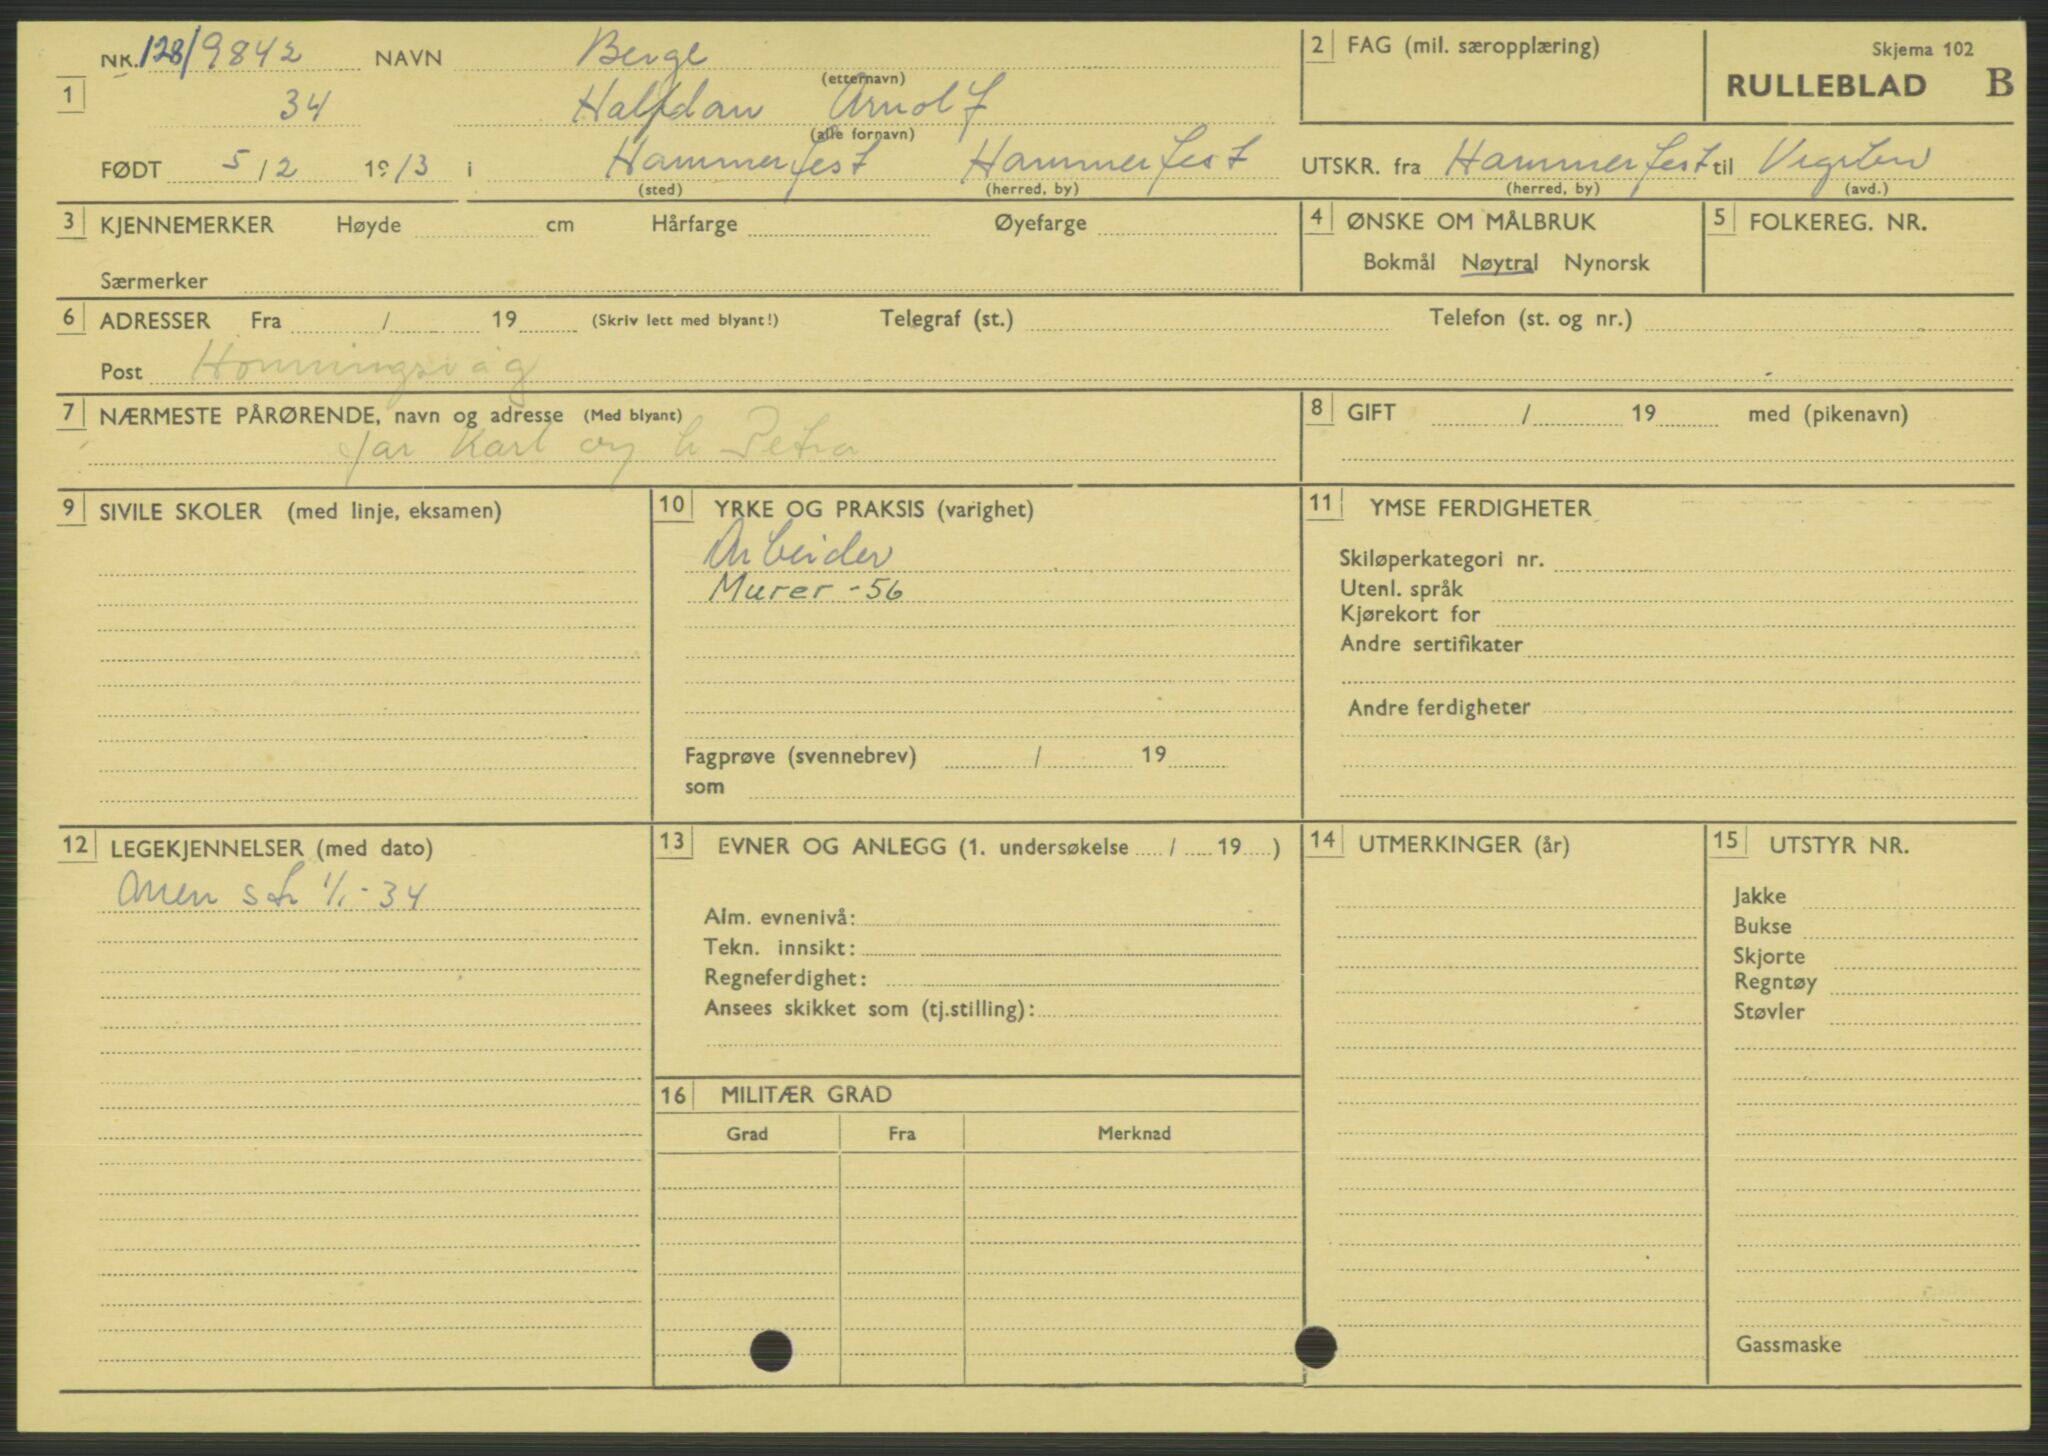 NR. 128/9842 NAVN Berge
(etternavn)
1
34 Halfdan Arnolf
(alle fornavn)
FØDT 5/2 1913 i Hammerfest Hammerfest
(sted) (herred, by)
2 FAG (mil. særopplæring)
Skjema 102
RULLEBLAD B
UTSKR. fra Hammerfest til
(herred, by) (avd.)
3 KJENNEMERKER Høyde cm Hårfarge Øyefarge
Særmerker
4 ØNSKE OM MÅLBRUK
Bokmål Nøytral Nynorsk
5 FOLKEREG. NR.
6 ADRESSER Fra / 19 (Skriv lett med blyant!) Telegraf (st.) Telefon (st. og nr.)
Post Honningsvåg
7 NÆRMESTE PÅRØRENDE, navn og adresse (Med blyant)
far Karl og h Petra
8 GIFT / 19 med (pikenavn)
9 SIVILE SKOLER (med linje, eksamen)
10 YRKE OG PRAKSIS (varighet)
Arbeider
Murer -56
Fagprøve (svennebrev) / 19
som
11 YMSE FERDIGHETER
Skiløperkategori nr.
Utenl. språk
Kjørekort for
Andre sertifikater
Andre ferdigheter
12 LEGEKJENNELSER (med dato)
1/1-34
13 EVNER OG ANLEGG (1. undersøkelse / 19 )
Alm. evnenivå:
Tekn. innsikt:
Regneferdighet:
Ansees skikket som (tj.stilling):
14 UTMERKINGER (år)
15 UTSTYR NR.
Jakke
Bukse
Skjorte
Regntøy
Støvler
Gassmaske
16 MILITÆR GRAD
Grad Fra Merknad